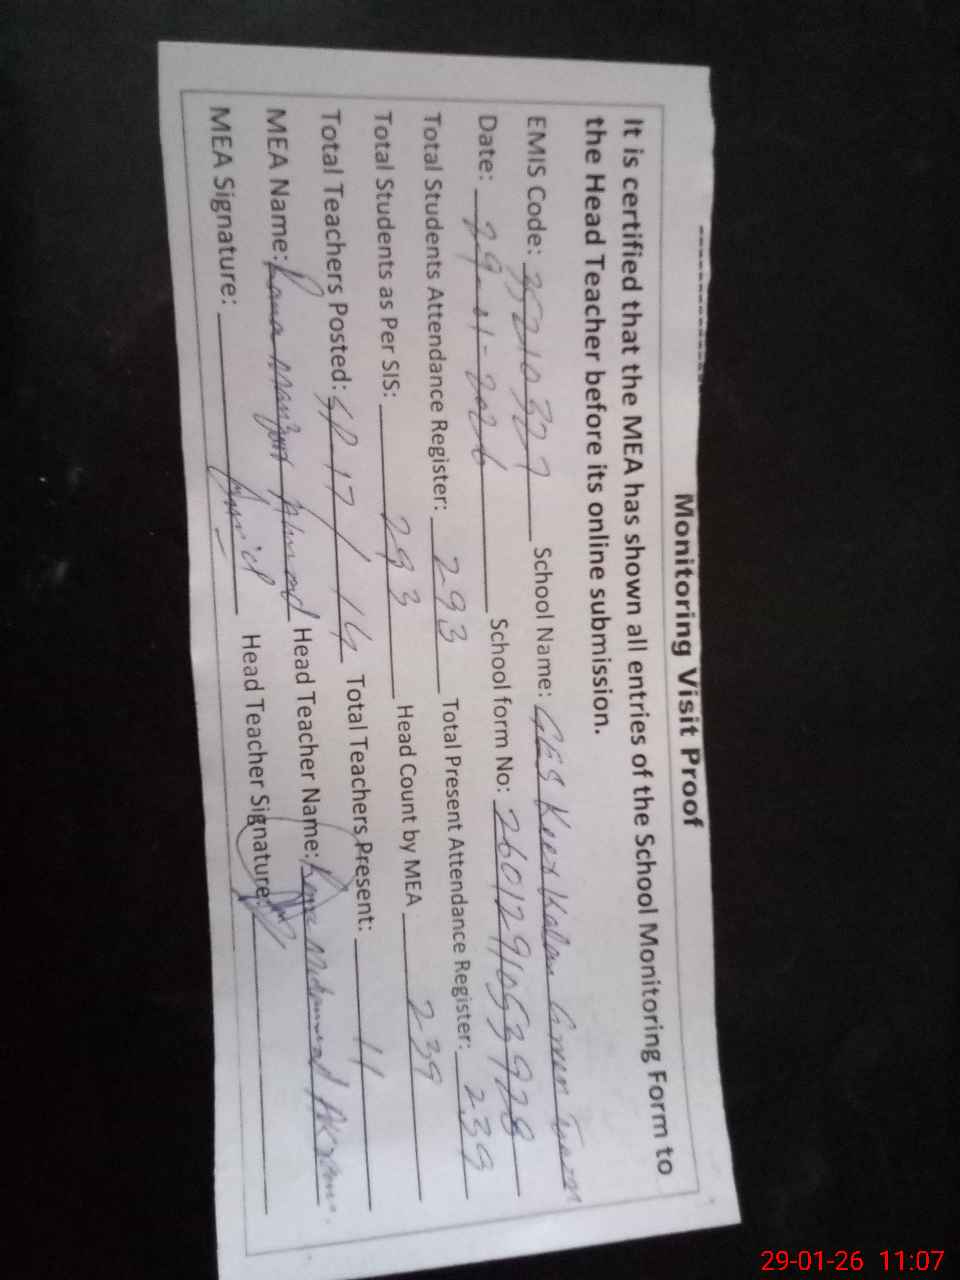 Monitoring Visit Proof
It is certified that the MEA has shown all entries of the School Monitoring Form to
the Head Teacher before its online submission.
EMIS Code: 35210327 School Name: GES Koot Kalan
Date: 29-01-2026 School form No: 26012910539728
Total Students Attendance Register: 293 Total Present Attendance Register: 239
Total Students as Per SIS: 293 Head Count by MEA 239
Total Teachers Posted: SP 17 / 14 Total Teachers Present: 11
MEA Name: Rana Ahmad Head Teacher Name: Rana Muhammad Akram
MEA Signature: Head Teacher Signature:
29-01-26 11:07